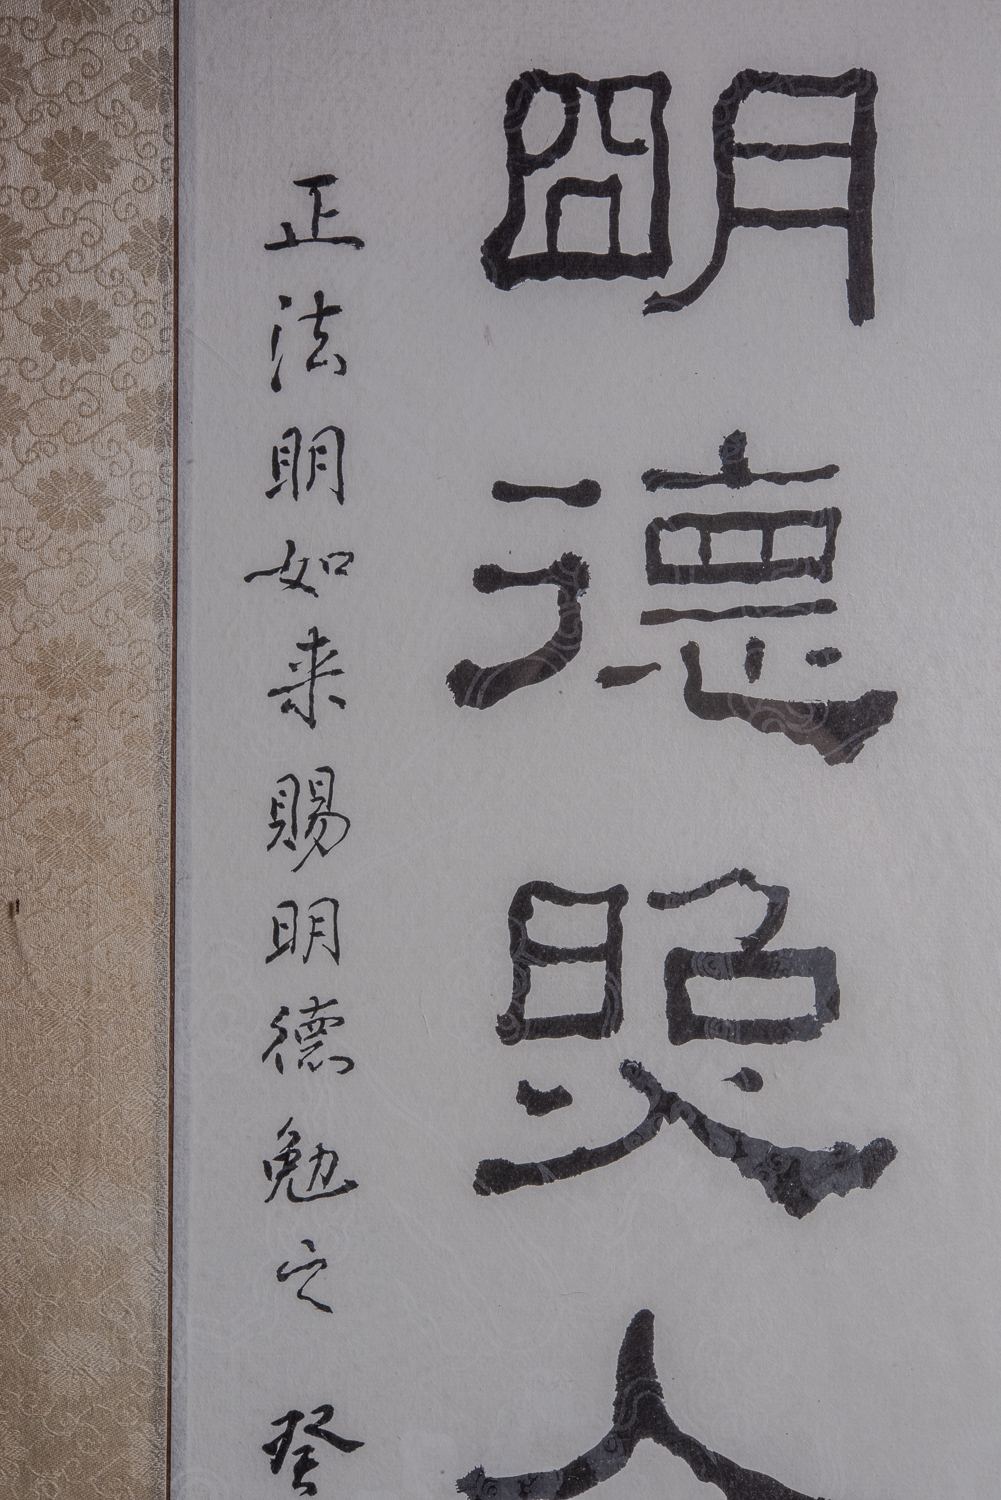 朙德照人
正法明如来賜明德勉之 癸